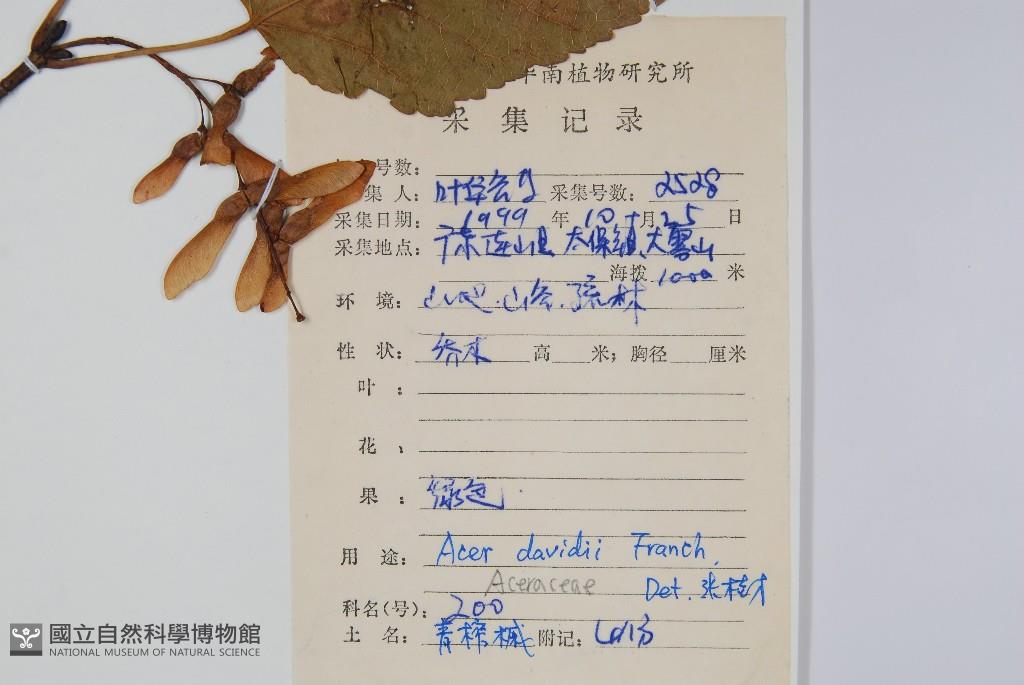 华南植物研究所
采集记录
号数：
集人：叶华谷 采集号数：2528
采集日期：1999 年 10 月 25 日
采集地点：广东连山县太保镇大雾山
海拨 1000 米
环 境：山地.山谷.疏林
性 状：乔木 高 米；胸径 厘米
叶 ：
花 、
果 ：绿色
用 途：Acer davidii Franch.
Aceraceae Det. 张桂才
科名(号)：200
土 名：青榨槭 附记：
國立自然科學博物館
NATIONAL MUSEUM OF NATURAL SCIENCE